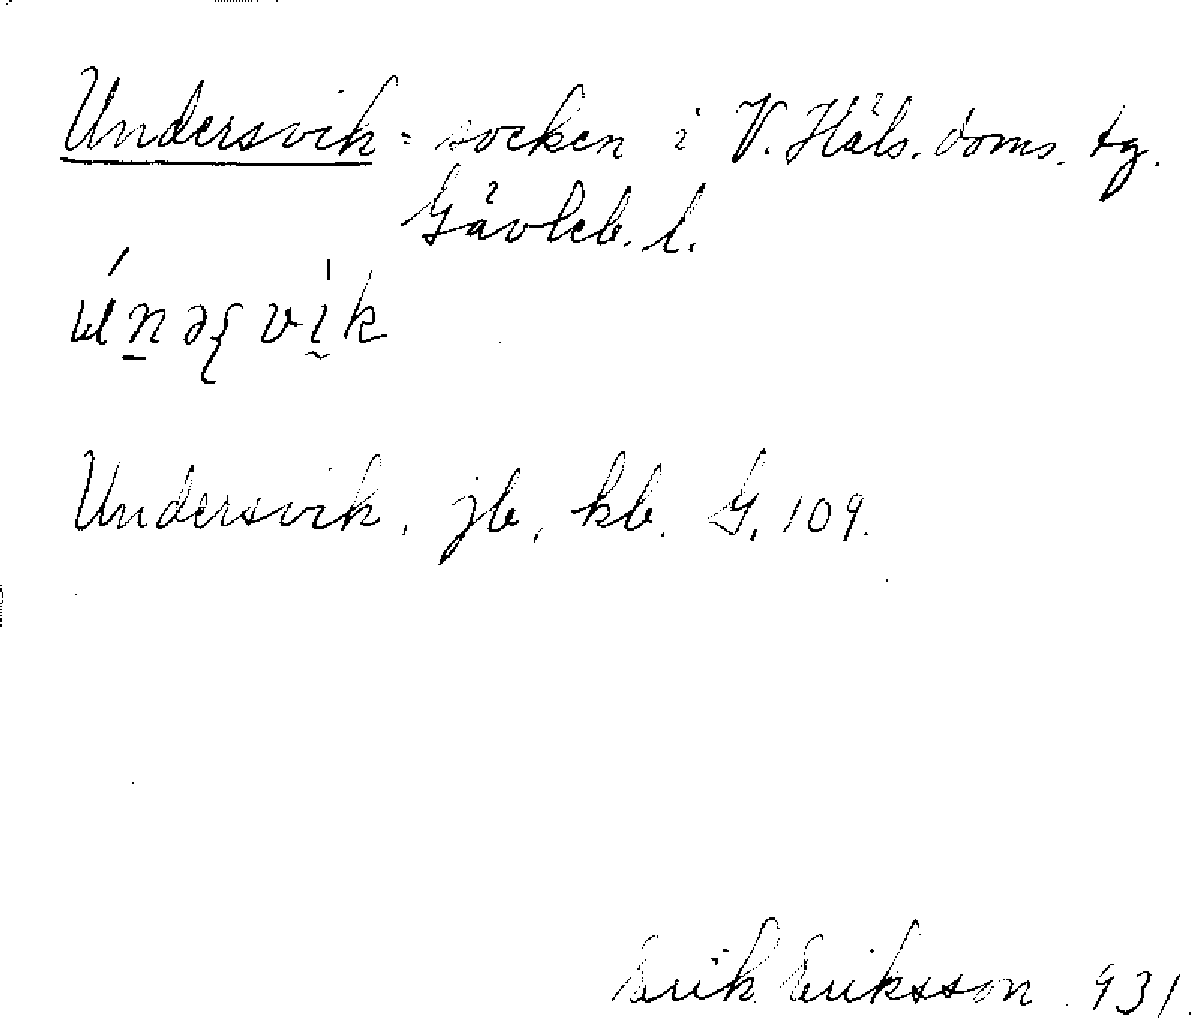 Undersvik = socken i V. Häls. doms. tg.
Gävleb. l.
Undersvik, jb, kb. G. 109.
Erik Eriksson. 931.